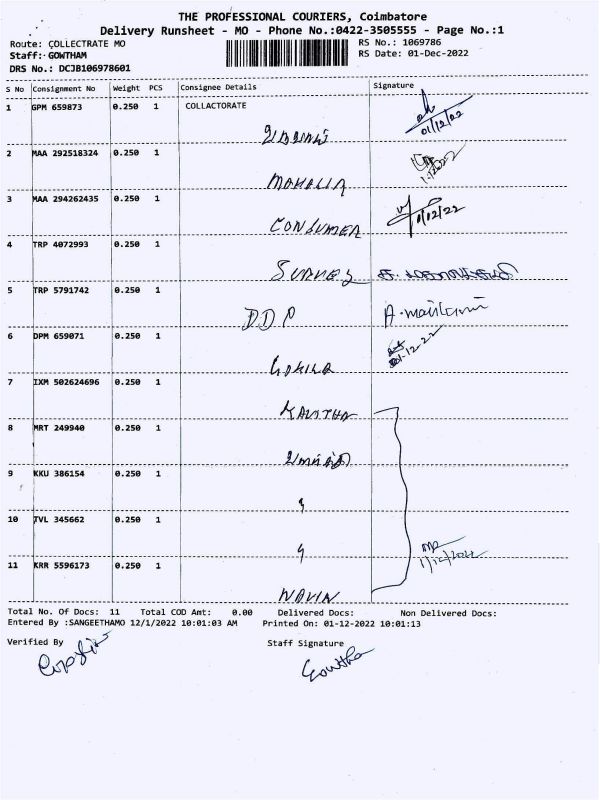 THE PROFESSIONAL COURIERS, Coimbatore
Delivery Runsheet - MO - Phone No.:0422-3505555 - Page No.:1
Route: COLLECTRATE MO RS No.: 1069786
Staff: GOWTHAM RS Date: 01-Dec-2022
DRS No.: DCJB106978601
S No Consignment No Weight PCS Consignee Details Signature
1 GPM 659873 0.250 1 COLLACTORATE
01/12/22
2 MAA 292518324 0.250 1
MAHALIA
3 MAA 294262435 0.250 1 1/12/22
CONSUMER
4 TRP 4072993 0.250 1
SURVEY
5 TRP 5791742 0.250 1
DDP
6 DPM 659071 0.250 1 01-12-22
GOKILA
7 IXM 502624696 0.250 1
KAVITHA
8 MRT 249940 0.250 1
9 KKU 386154 0.250 1
10 TVL 345662 0.250 1
11 KRR 5596173 0.250 1 1/12/2022
NAVIN
Total No. Of Docs: 11 Total COD Amt: 0.00 Delivered Docs: Non Delivered Docs:
Entered By :SANGEETHAMO 12/1/2022 10:01:03 AM Printed On: 01-12-2022 10:01:13
Verified By Staff Signature
Gowtha